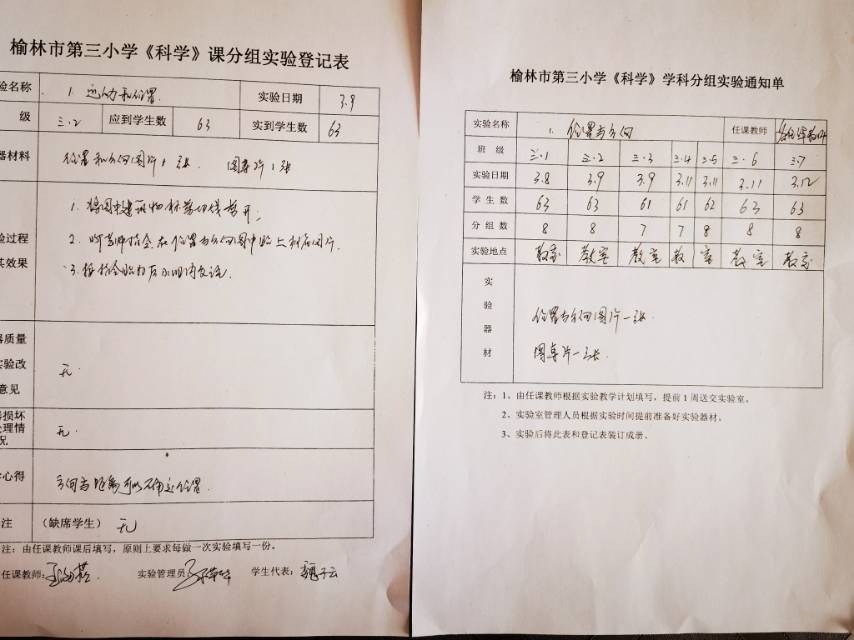 榆林市第三小学《科学》课分组实验登记表
验名称 1. 运动和位置 实验日期 3.9
级 三.2 应到学生数 63 实到学生数 63
器材料 位置和方向图片1张. 圆桌片1张
验过程
其效果
2. 听老师指令,在位置与方向图中贴上建筑图片.
器质量
实验改
意见 无.
器损坏
处理情
况 无.
心得 方向与距离可以确定位置.
注 (缺席学生) 无
注:由任课教师课后填写,原则上要求每做一次实验填写一份。
任课教师: 实验管理员: 学生代表:
榆林市第三小学《科学》学科分组实验通知单
实验名称 1. 位置与方向 任课教师
班 级 三.1 三.2 三.3 三.4 三.5 三.6 三.7
实验日期 3.8 3.9 3.9 3.11 3.11 3.11 3.12
学 生 数 63 63 61 61 62 63 63
分 组 数 8 8 7 7 8 8 8
实验地点 教室 教室 教室 教 室 教室 教室
实
验
器
材
位置与方向图片一张.
圆桌片一张.
注:1、由任课教师根据实验教学计划填写,提前1周送交实验室。
2、实验室管理人员根据实验时间提前准备好实验器材。
3、实验后将此表和登记表装订成册。